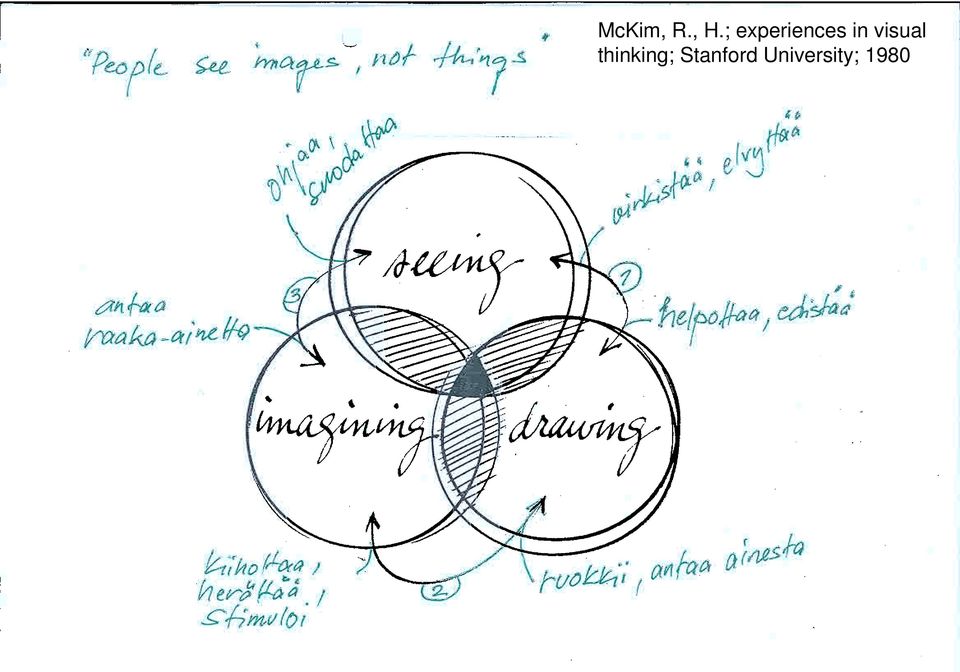 McKim, R., H.; experiences in visual
thinking; Stanford University; 1980
"People see images, not things"
ohjaa,
suodattaa
virkistää, elvyttää
seeing
3
1
antaa
raaka-ainetta
helpottaa, edistää
imagining
drawing
kiihottaa,
herättää,
stimuloi
2
ruokkii, antaa ainesta